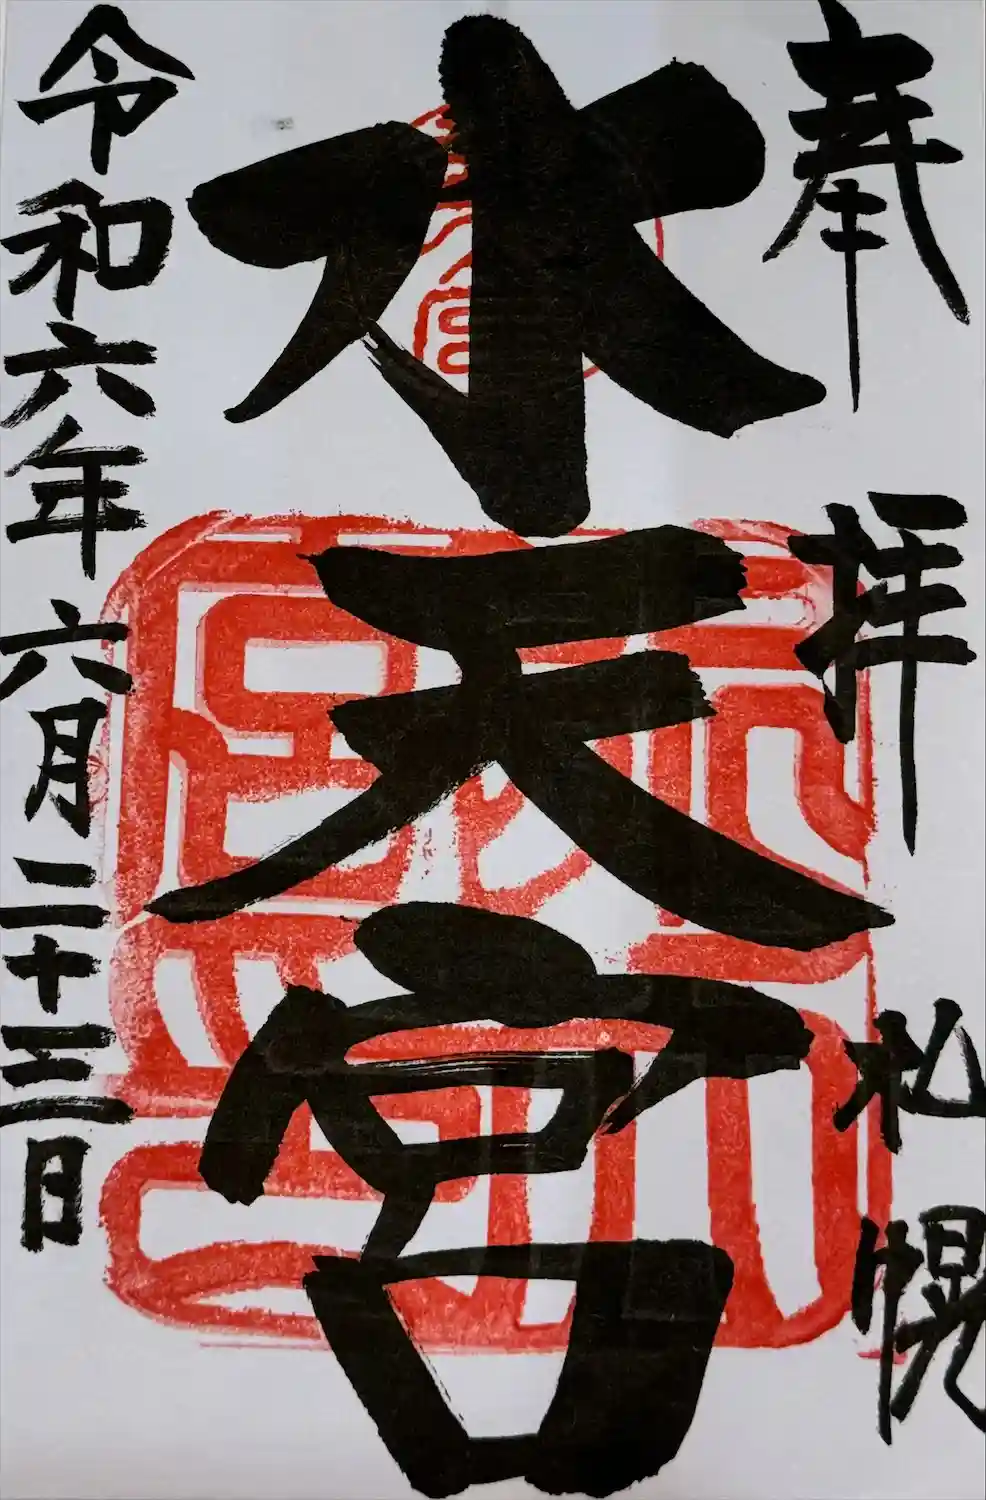 奉拝
札幌
水天宮
令和六年六月二十三日